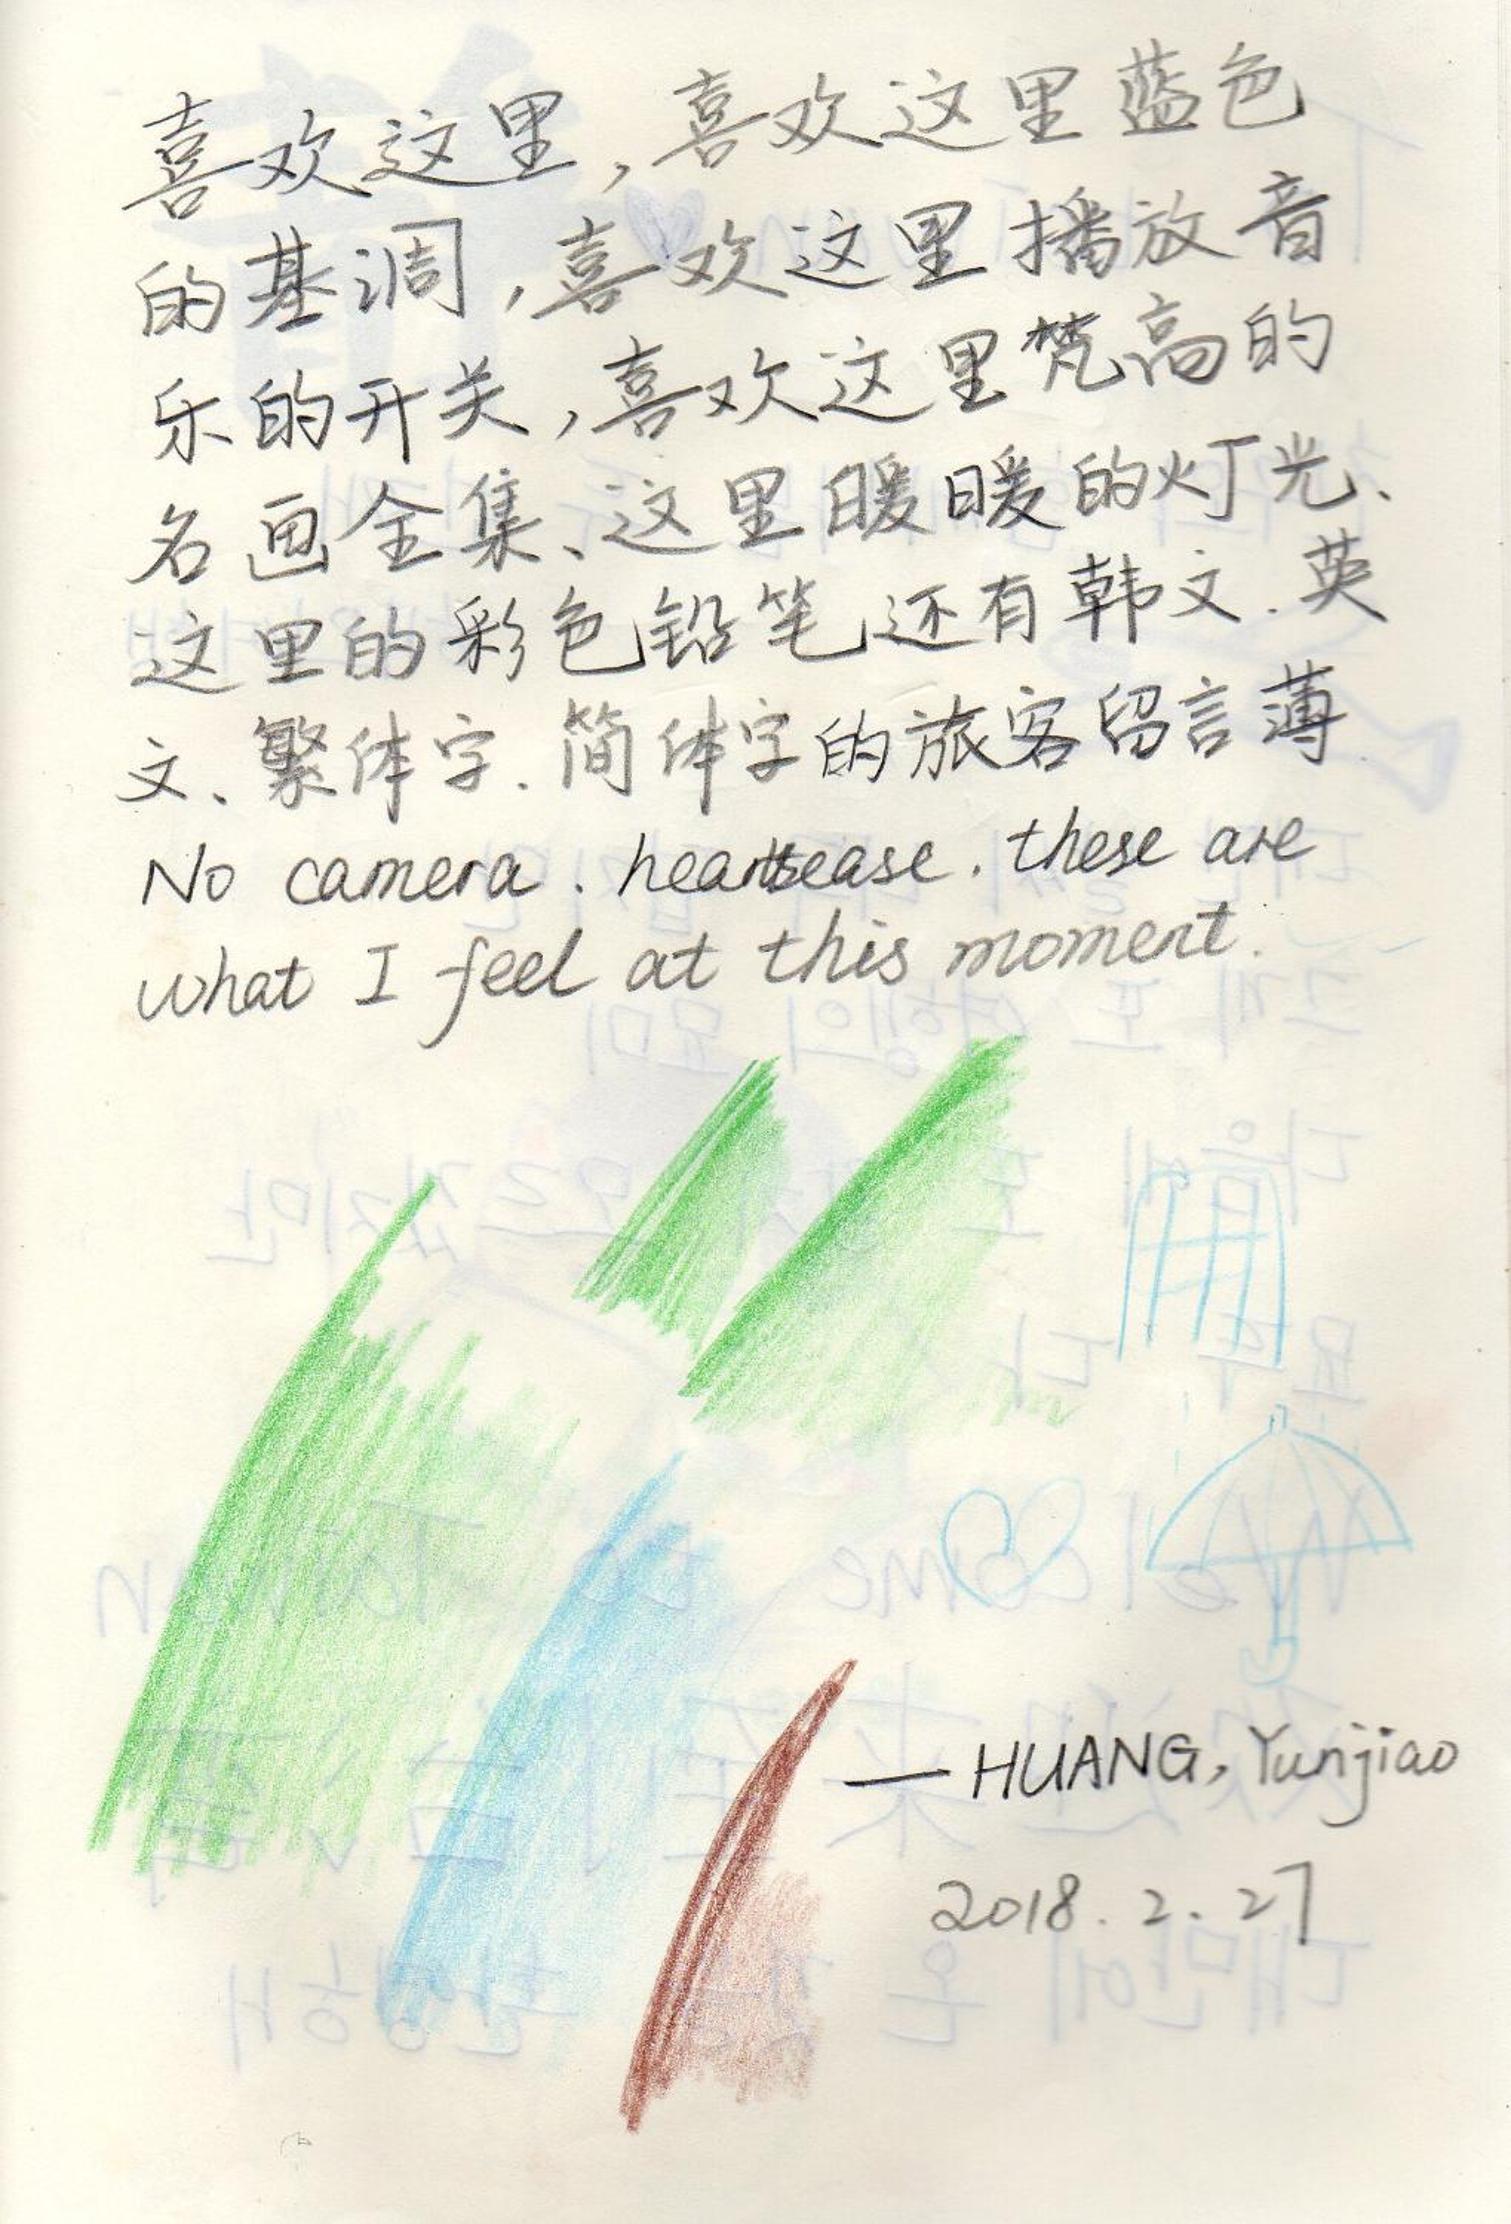 喜欢这里，喜欢这里蓝色
的基调，喜欢这里播放音
乐的开关，喜欢这里梵高的
名画全集、这里暖暖的灯光、
这里的彩色铅笔还有韩文.英
文、繁体字.简体字的旅客留言薄
No camera. heartsease. these are
what I feel at this moment.
— HUANG, Yunjiao
2018.2.27